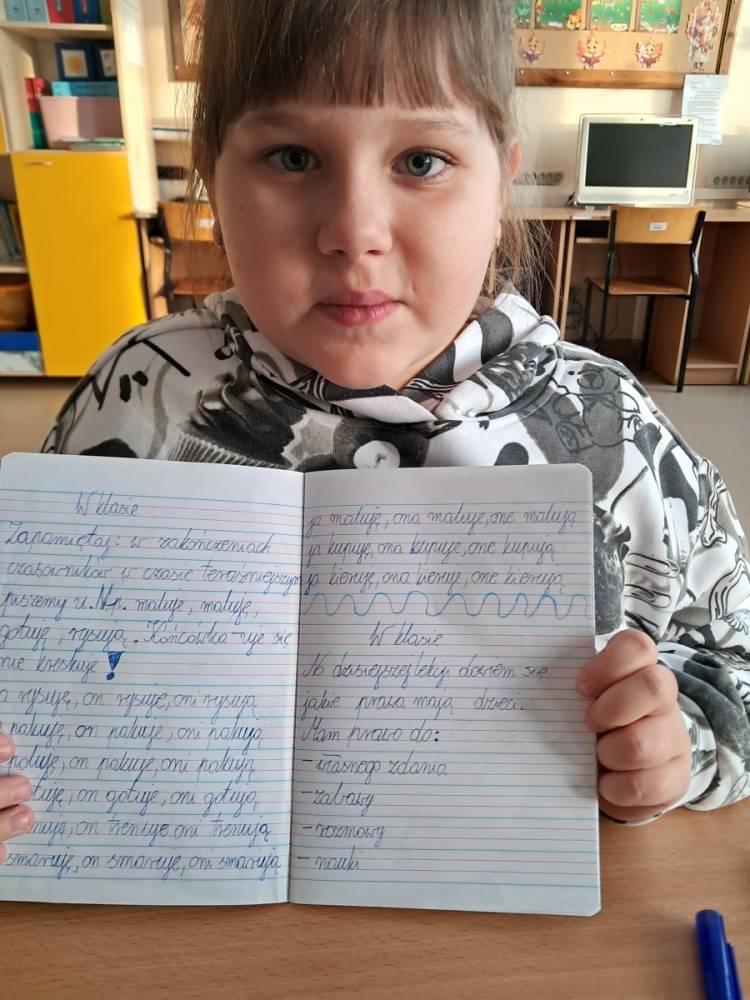 W klasie
Zapamiętaj: w zakończeniach
czasowników w czasie teraźniejszym
piszemy u. Np. maluje, maluję,
gotuję, rysują. Końcówka -uje się
nie kreskuje!
rysuję, on rysuje, oni rysują
pakuję, on pakuje, oni pakują
on pakuje, oni pakują
on gotuje, oni gotują
on trenuje oni trenują
smaruję, on smaruje, oni smarują
ja maluję, ona maluje, one malują
ja kupuję, ona kupuje, one kupują
ja kieruję, ona kieruje, one kierują
W klasie
Na dzisiejszej lekcji dowiem się
jakie prawa mają dzieci.
Mam prawo do:
- własnego zdania
- zabawy
- rozmowy
- nauki